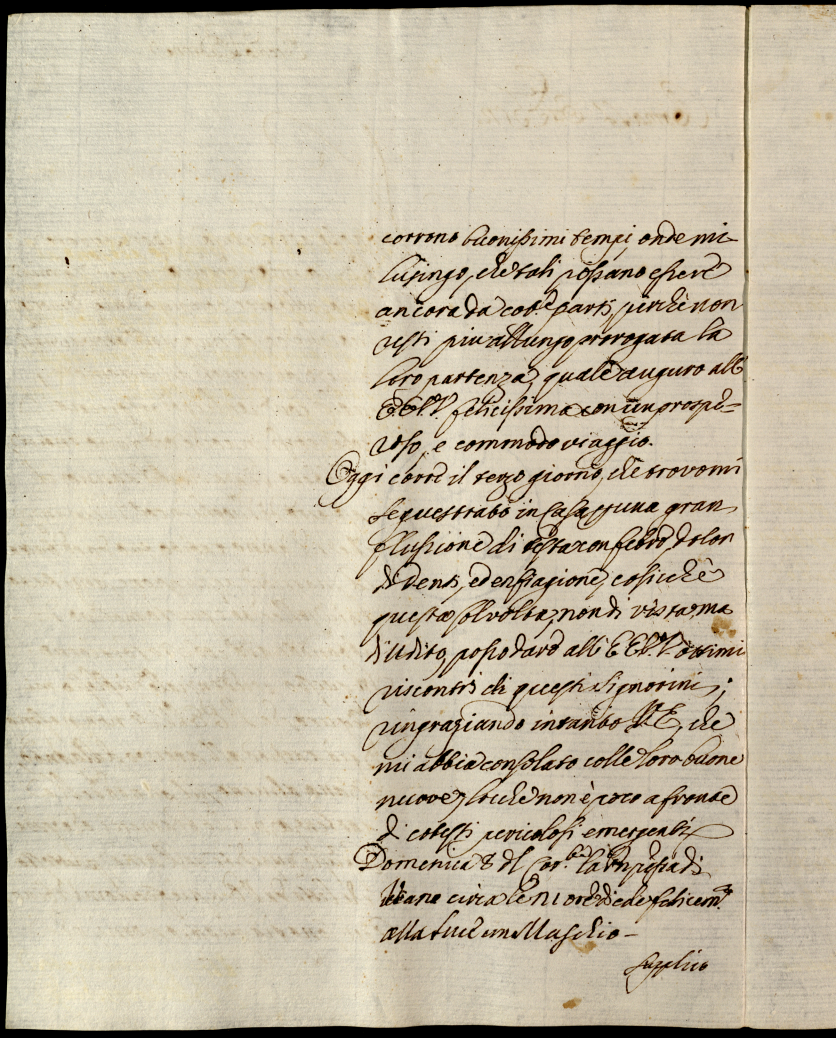 corrono buonissimi tempi, onde mi
lusingo, che tali possano essere
ancora da cot.e parti, perchè non
resti piu allungo prorogata la
loro partenza, quale auguro all'
EE.VV. felicissima con un prospe=
roso, e commodo viaggio.
Oggi corre il terzo giorno, che trovomi
sequestrato in Casa p una gran
flussione di testa con febre, dolor
di denti, ed enfiagione, cosicchè
questa sol volta, non di vista, ma
d'udito, posso dare all' EE.VV. ottimi
riscontri di questi Signorini;
ringraziando intanto V.E., che
mi abbia consolato colle loro buone
nuove, locchè non è poco a fronte
di cotesti pericolosi emergenti
Domenica 8 del Cor.te la Pnpessa di
circa le ore diede felicem.te
alla luce un Maschio -
Supplico